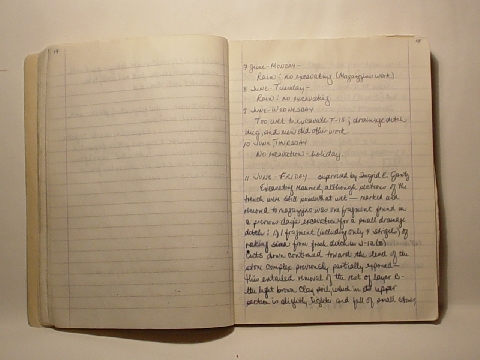 14
15
7 June - Monday -
Rain; no excavating (Magazzino work)
8 June Tuesday -
Rain; no excavating
9 June - Wednesday
Too wet to excavate T-15; drainage ditch
dug, and men did other work
10 June Thursday
No excavation - holiday.
11 June - Friday supervised by Ingrid E.
Excavating resumed, although sections of the
trench were still somewhat wet - marked and
removed to magazzino was one fragment found on
a previous day's excavation for a small drainage
ditch: 1) fragment (including only
) of
from ditch
Cuts down continued toward the level of the
stone complex previously partially exposed -
this entailed removal of the rest of layer B -
the light brown clay soil, which in its upper
portion is slightly and full of small stones